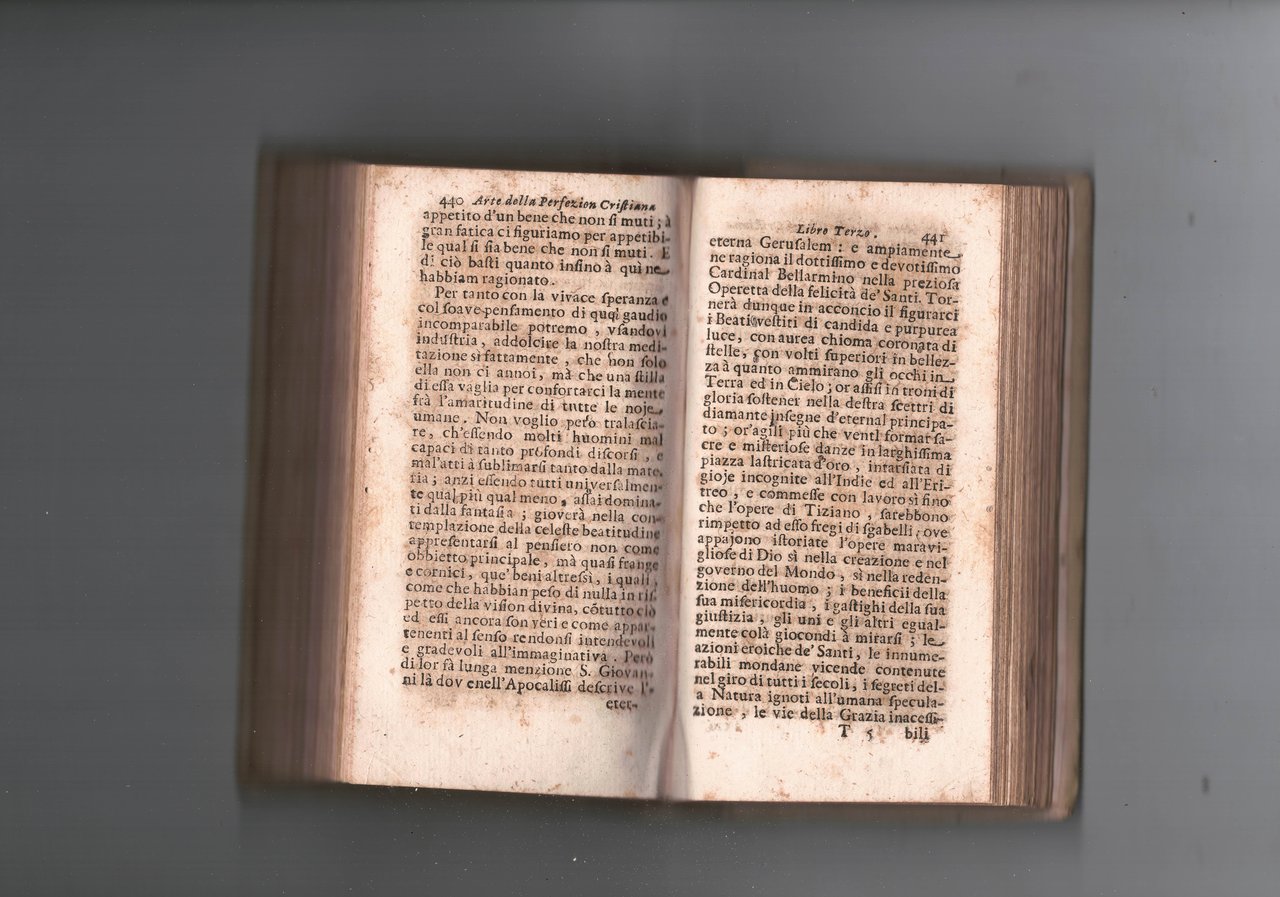 440 Arte della Perfezion Cristiana
appetito d'un bene che non ſi muti; à
gran fatica ci figuriamo per appetibi-
le qual ſi ſia bene che non ſi muti. E
di ciò baſti quanto inſino à quì ne
habbiam ragionato.
Per tanto con la vivace ſperanza e
col ſoave penſamento di quel gaudio
incomparabile potremo, vſandovi
induſtria, addolcire la noſtra medi-
tazione sì fattamente, che non ſolo
ella non ci annoi, mà che una ſtilla
di eſſa vaglia per confortarci la mente
frà l'amaritudine di tutte le noje
umane. Non voglio però tralaſcia-
re, ch'eſſendo molti huomini mal
capaci di tanto profondi diſcorſi, e
mal'atti à ſublimarſi tanto dalla mate-
ria; anzi eſſendo tutti univerſalmen-
te qual più qual meno, aſſai domina-
ti dalla fantaſia; gioverà nella con-
templazione della celeſte beatitudine
appreſentarſi al penſiero non come
obbietto principale, mà quaſi frange
e cornici, que' beni altresſì, i quali,
come che habbian peſo di nulla in riſ-
petto della viſion divina, cõtutto ciò
ed eſſi ancora ſon veri e come appar-
tenenti al ſenſo rendonſi intendevoli
e gradevoli all'immaginativa. Però
di lor fà lunga menzione S. Giovan-
ni là dov enell'Apocaliſſi deſcrive l'-
eter-
Libro Terzo. 441
eterna Geruſalem: e ampiamente
ne ragiona il dottiſſimo e devotiſſimo
Cardinal Bellarmino nella prezioſa
Operetta della felicità de' Santi. Tor-
nerà dunque in acconcio il figurarci
i Beati veſtiti di candida e purpurea
luce, con aurea chioma coronata di
ſtelle, con volti ſuperiori in bellez-
za à quanto ammirano gli occhi in
Terra ed in Cielo; or aſſiſi in troni di
gloria ſoſtener nella deſtra ſcettri di
diamante inſegne d'eternal principa-
to; or'agili più che venti formar ſa-
cre e miſterioſe danze in larghiſſima
piazza laſtricata d'oro, intarſiata di
gioje incognite all'Indie ed all'Eri-
treo, e commeſſe con lavoro sì fino
che l'opere di Tiziano, ſarebbono
rimpetto ad eſſo fregi di ſgabelli; ove
appajono iſtoriate l'opere maravi-
glioſe di Dio sì nella creazione e nel
governo del Mondo, sì nella reden-
zione dell'huomo; i beneficii della
ſua miſericordia, i gaſtighi della ſua
giuſtizia, gli uni e gli altri egual-
mente colà giocondi à mirarſi; le
azioni eroiche de' Santi, le innume-
rabili mondane vicende contenute
nel giro di tutti i ſecoli, i ſegreti del-
a Natura ignoti all'umana ſpecula-
zione, le vie della Grazia inaceſſi-
T 5 bili